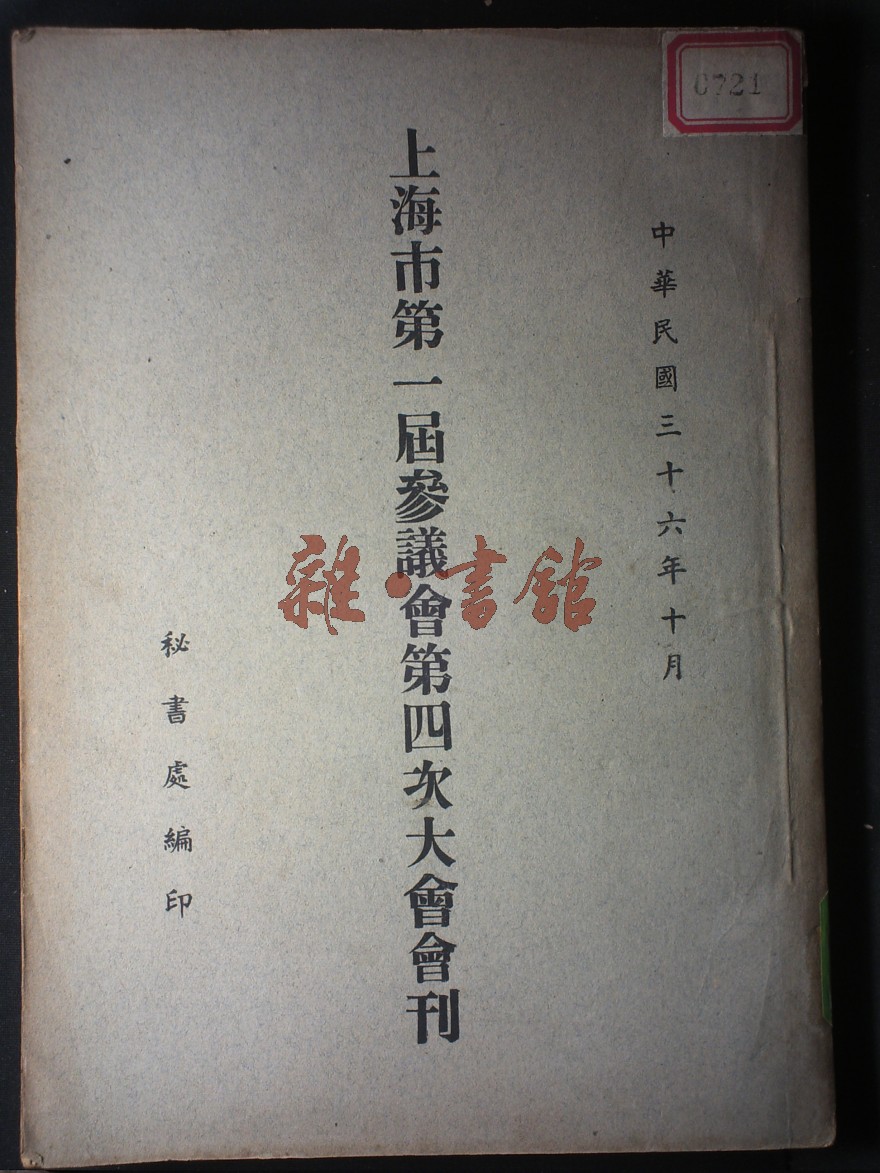 0721
中華民國三十六年十月
上海市第一屆參議會第四次大會會刊
秘書處編印
雜·書館